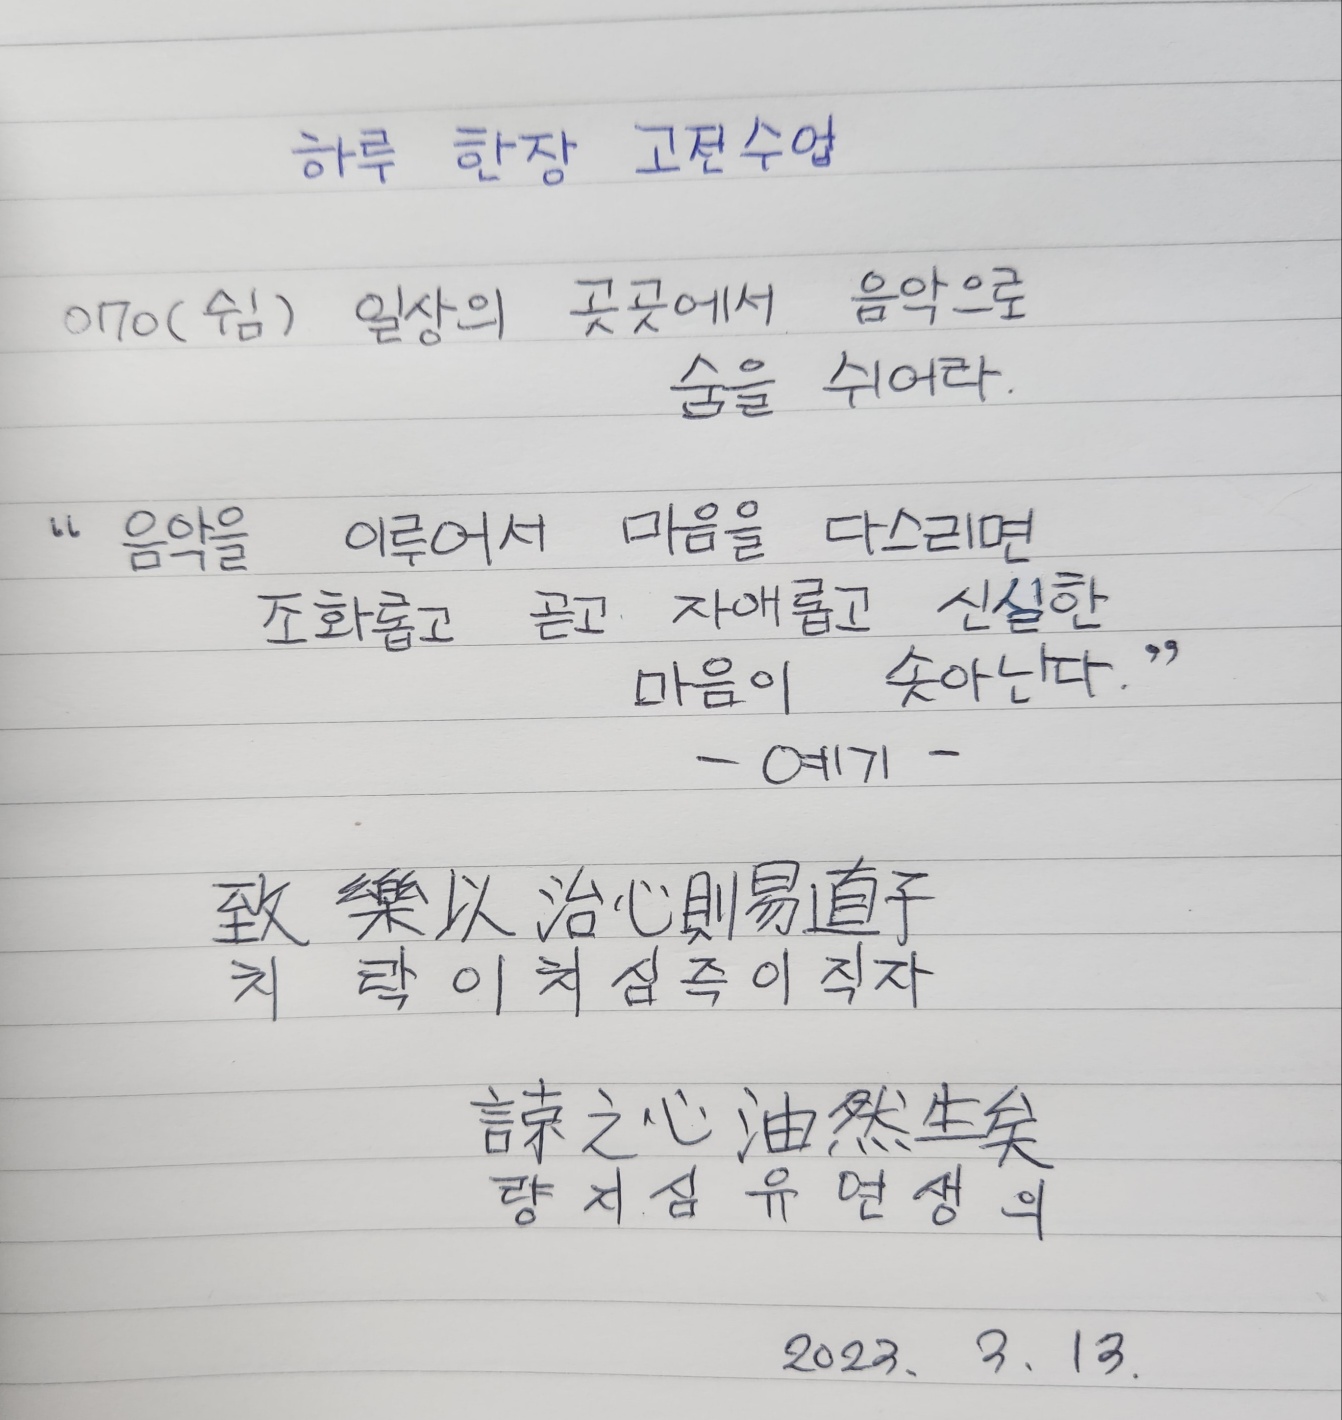 하루 한장 고전수업
070(쉼) 일상의 곳곳에서 음악으로
숨을 쉬어라.
“음악을 이루어서 마음을 다스리면
조화롭고 곧고 자애롭고 신실한
마음이 솟아난다.”
- 예기 -
致樂以治心則易直子
치 락 이 치 심 즉 이 직 자
諫之心油然生矣
량 지 심 유 연 생 의
2023. 3. 13.